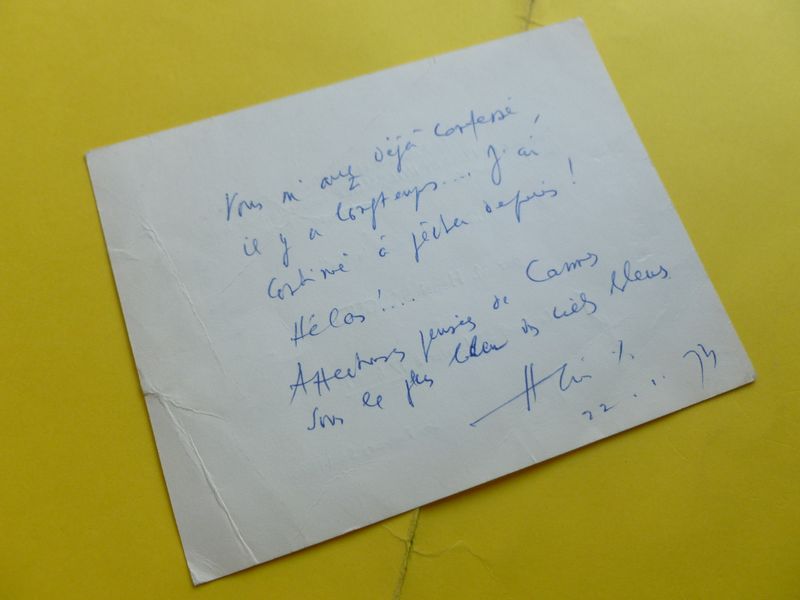 Vous m'avez déjà confessé,
il y a longtemps.... J'ai
continué à pécher depuis!
Hélas!....
Affectueuses pensées de Cannes
sous le plus bleu des ciels bleus
22.1.73